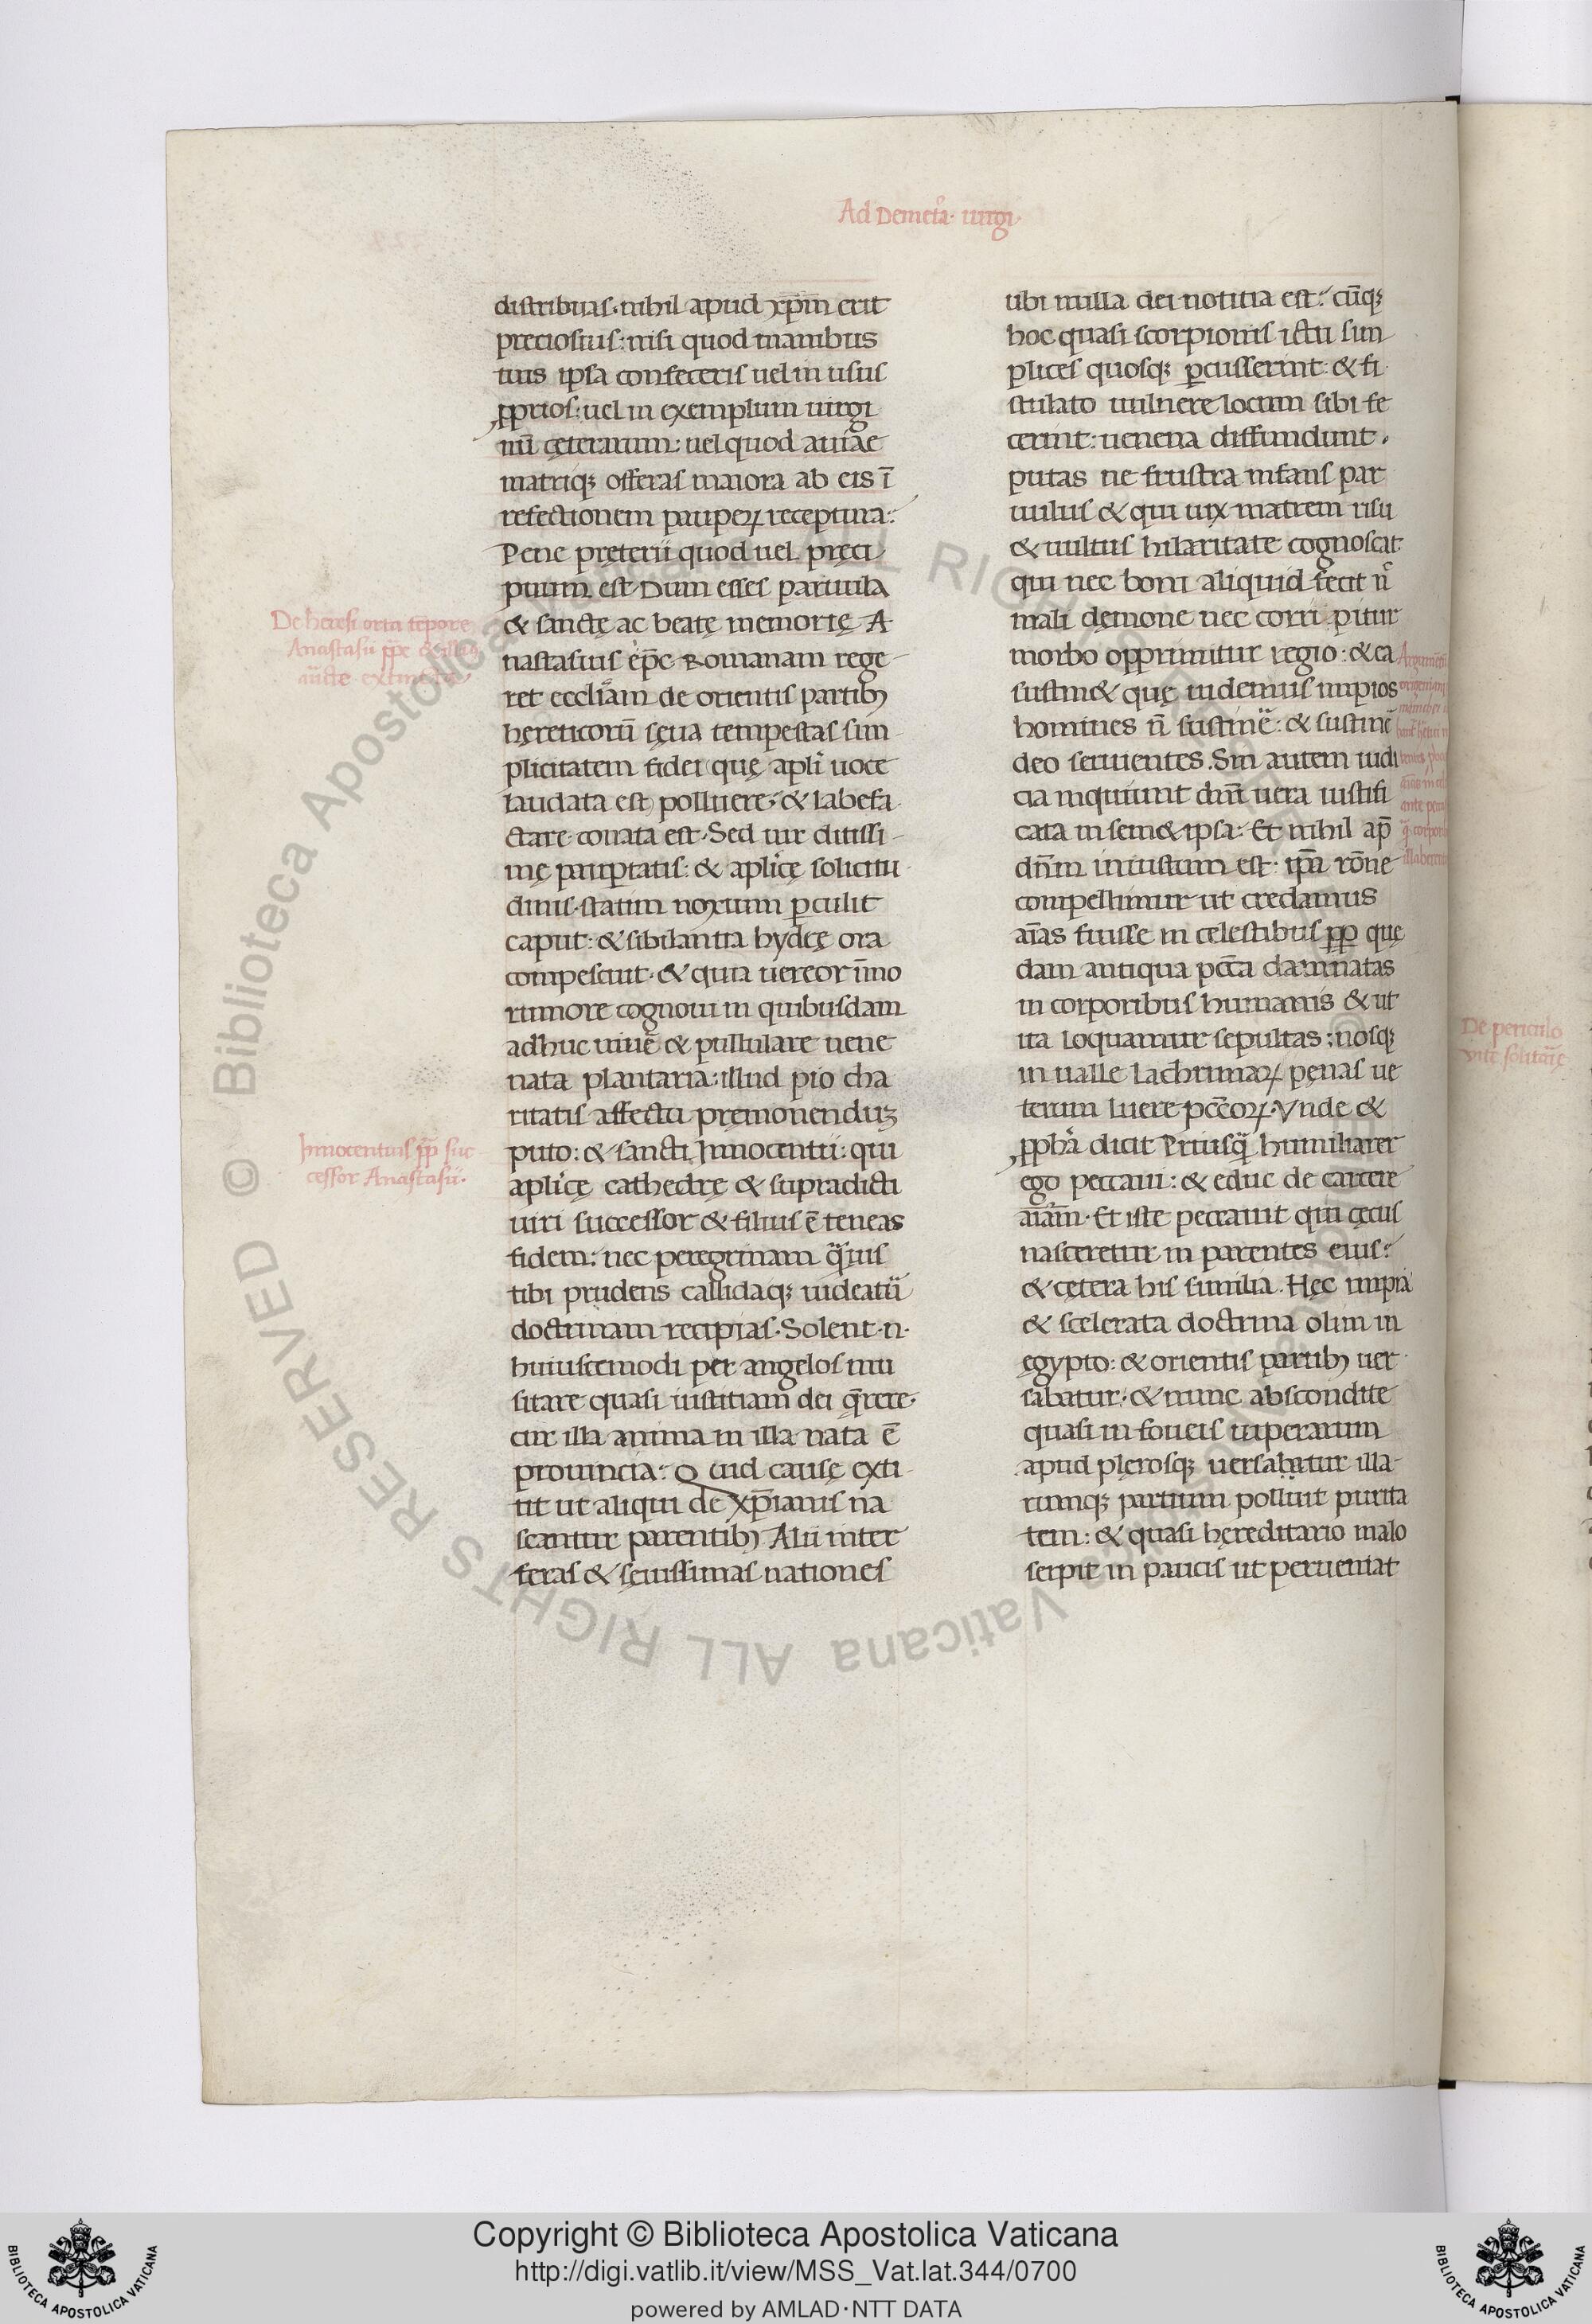 Ad Demet̃a· uirgi·
distribuas· nihil apud xp̄m erit
preciosius: nisi quod manibus
tuis ipsa confeceris uel in usus
ꝓprios: uel in exemplum uirgi
nū cęterarum: uel quod auiae
matriqꝫ offeras maiora ab eis ī
refectionem pauperꝝ receptura:
Pene pręterii quod uel pręci
puum est· Dum esses paruula
& sanctę ac beatę memorię A
nastasius ep̄c Romanam rege
ret eccl̄iam de orientis partibꝫ
hęreticorū sęua tempestas sim
plicitatem fidei quę apl̄i uoce
laudata est polluere· & labefa
ctare conata est· Sed uir ditissi
mę pauꝑtatis: & apl̄icę solicitu
dinis· statim noxium ꝑculit
caput: & sibilantia hydrę ora
compescuit· & quia uereor im̄o
rumore cognoui in quibusdam
adhuc uiuē & pullulare uene
nata plantaria: illud pio cha
ritatis affectu pręmonenduꝫ
puto: & sancti Innocentii: qui
apl̄icę cathedrę & supradicti
uiri successor & filius ē teneas
fidem: nec peregrinam q̄uis
tibi prudens callidaqꝫ uideatū
doctrinam recipias· Solent·n·
huiuscemodi per angelos mu
sitare quasi iustitiam dei q̄rere·
cur illa anima in illa nata ē
prouincia: Quid causę exti
tit ut aliqui de xp̄ianis na
scantur parentibꝫ Alii inter
feras & sęuissimas nationes
ubi nulla dei notitia est: cūqꝫ
hoc quasi scorpionis ictu sim
plices quosqꝫ ꝑcusserint: & fi
stulato uulnere locum sibi fe
cerint: uenena diffundunt·
putas ne frustra infans par
uulus & qui uix matrem risu
& uultus hilaritate cognoscat
qui nec boni aliquid fecit n̄
mali dęmone nec corripitur
morbo opprimitur regio: & ea
sustin& quę uidemus impios
homines n̄ sustinē: & sustinē
deo seruentes· Sin autem iudi
cia inquiunt dn̄i uera iustifi
cata in semet ipsa: Et nihil ap̄
dn̄m iniustum est: ip̄a rōne
compellimur ut credamus
aīas fuisse in celestibus ꝓp quę
dam antiqua pcc̄a damnatas
in corporibus humanis & ut
ita loquamur sepultas: nosqꝫ
in ualle lachrimaꝝ pęnas ue
terum luere pcc̄orꝝ· Vnde &
ꝓpha dicit Priusq̄ humiliarer
ego peccaui: & educ de carcere
aīam· Et iste peccauit qui cęcus
nasceretur in parentes eius:
& cętera his similia· Hęc impia
& scelerata doctrina olim in
egypto: & orientis partibꝫ uer
sabatur: & nunc abscondite
quasi in foueis uiperarum
apud plerosqꝫ uersabatur illa
rumqꝫ partium polluit purita
tem: & quasi hereditario malo
serpit in paucis ut perueniat
De heresi orta tēpore
Anastasii pp̄e
Innocentius pp̄ suc
cessor Anastasii·
De periculo
vitę solitarię
© Biblioteca Apostolica Vaticana ALL RIGHTS RESERVED
Copyright © Biblioteca Apostolica Vaticana
http://digi.vatlib.it/view/MSS_Vat.lat.344/0700
powered by AMLAD·NTT DATA
BIBLIOTECA APOSTOLICA VATICANA
BIBLIOTECA APOSTOLICA VATICANA